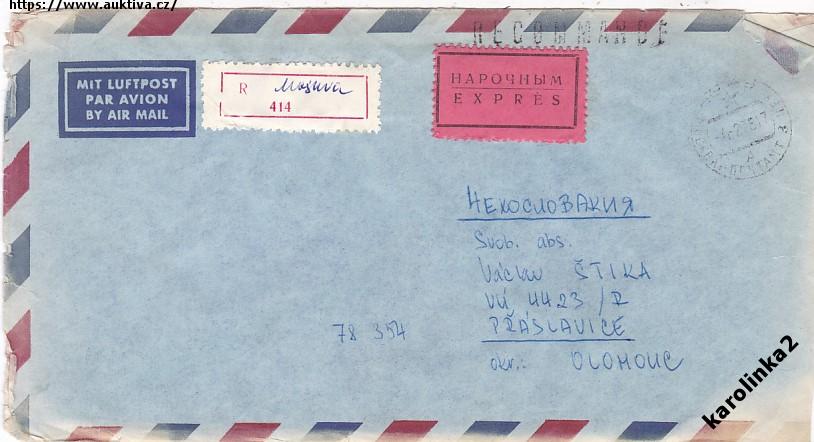 https://www.auktiva.cz/
RECOMMANDE
MIT LUFTPOST
PAR AVION
BY AIR MAIL
R Moskva
414
НАРОЧНЫМ
EXPRÈS
ЧЕХОСЛОВАКИЯ
Svob. abs.
Václav ŠTIKA
VÚ 4423/R
PŘÁSLAVICE
okr.: OLOMOUC
78 354
karolinka2